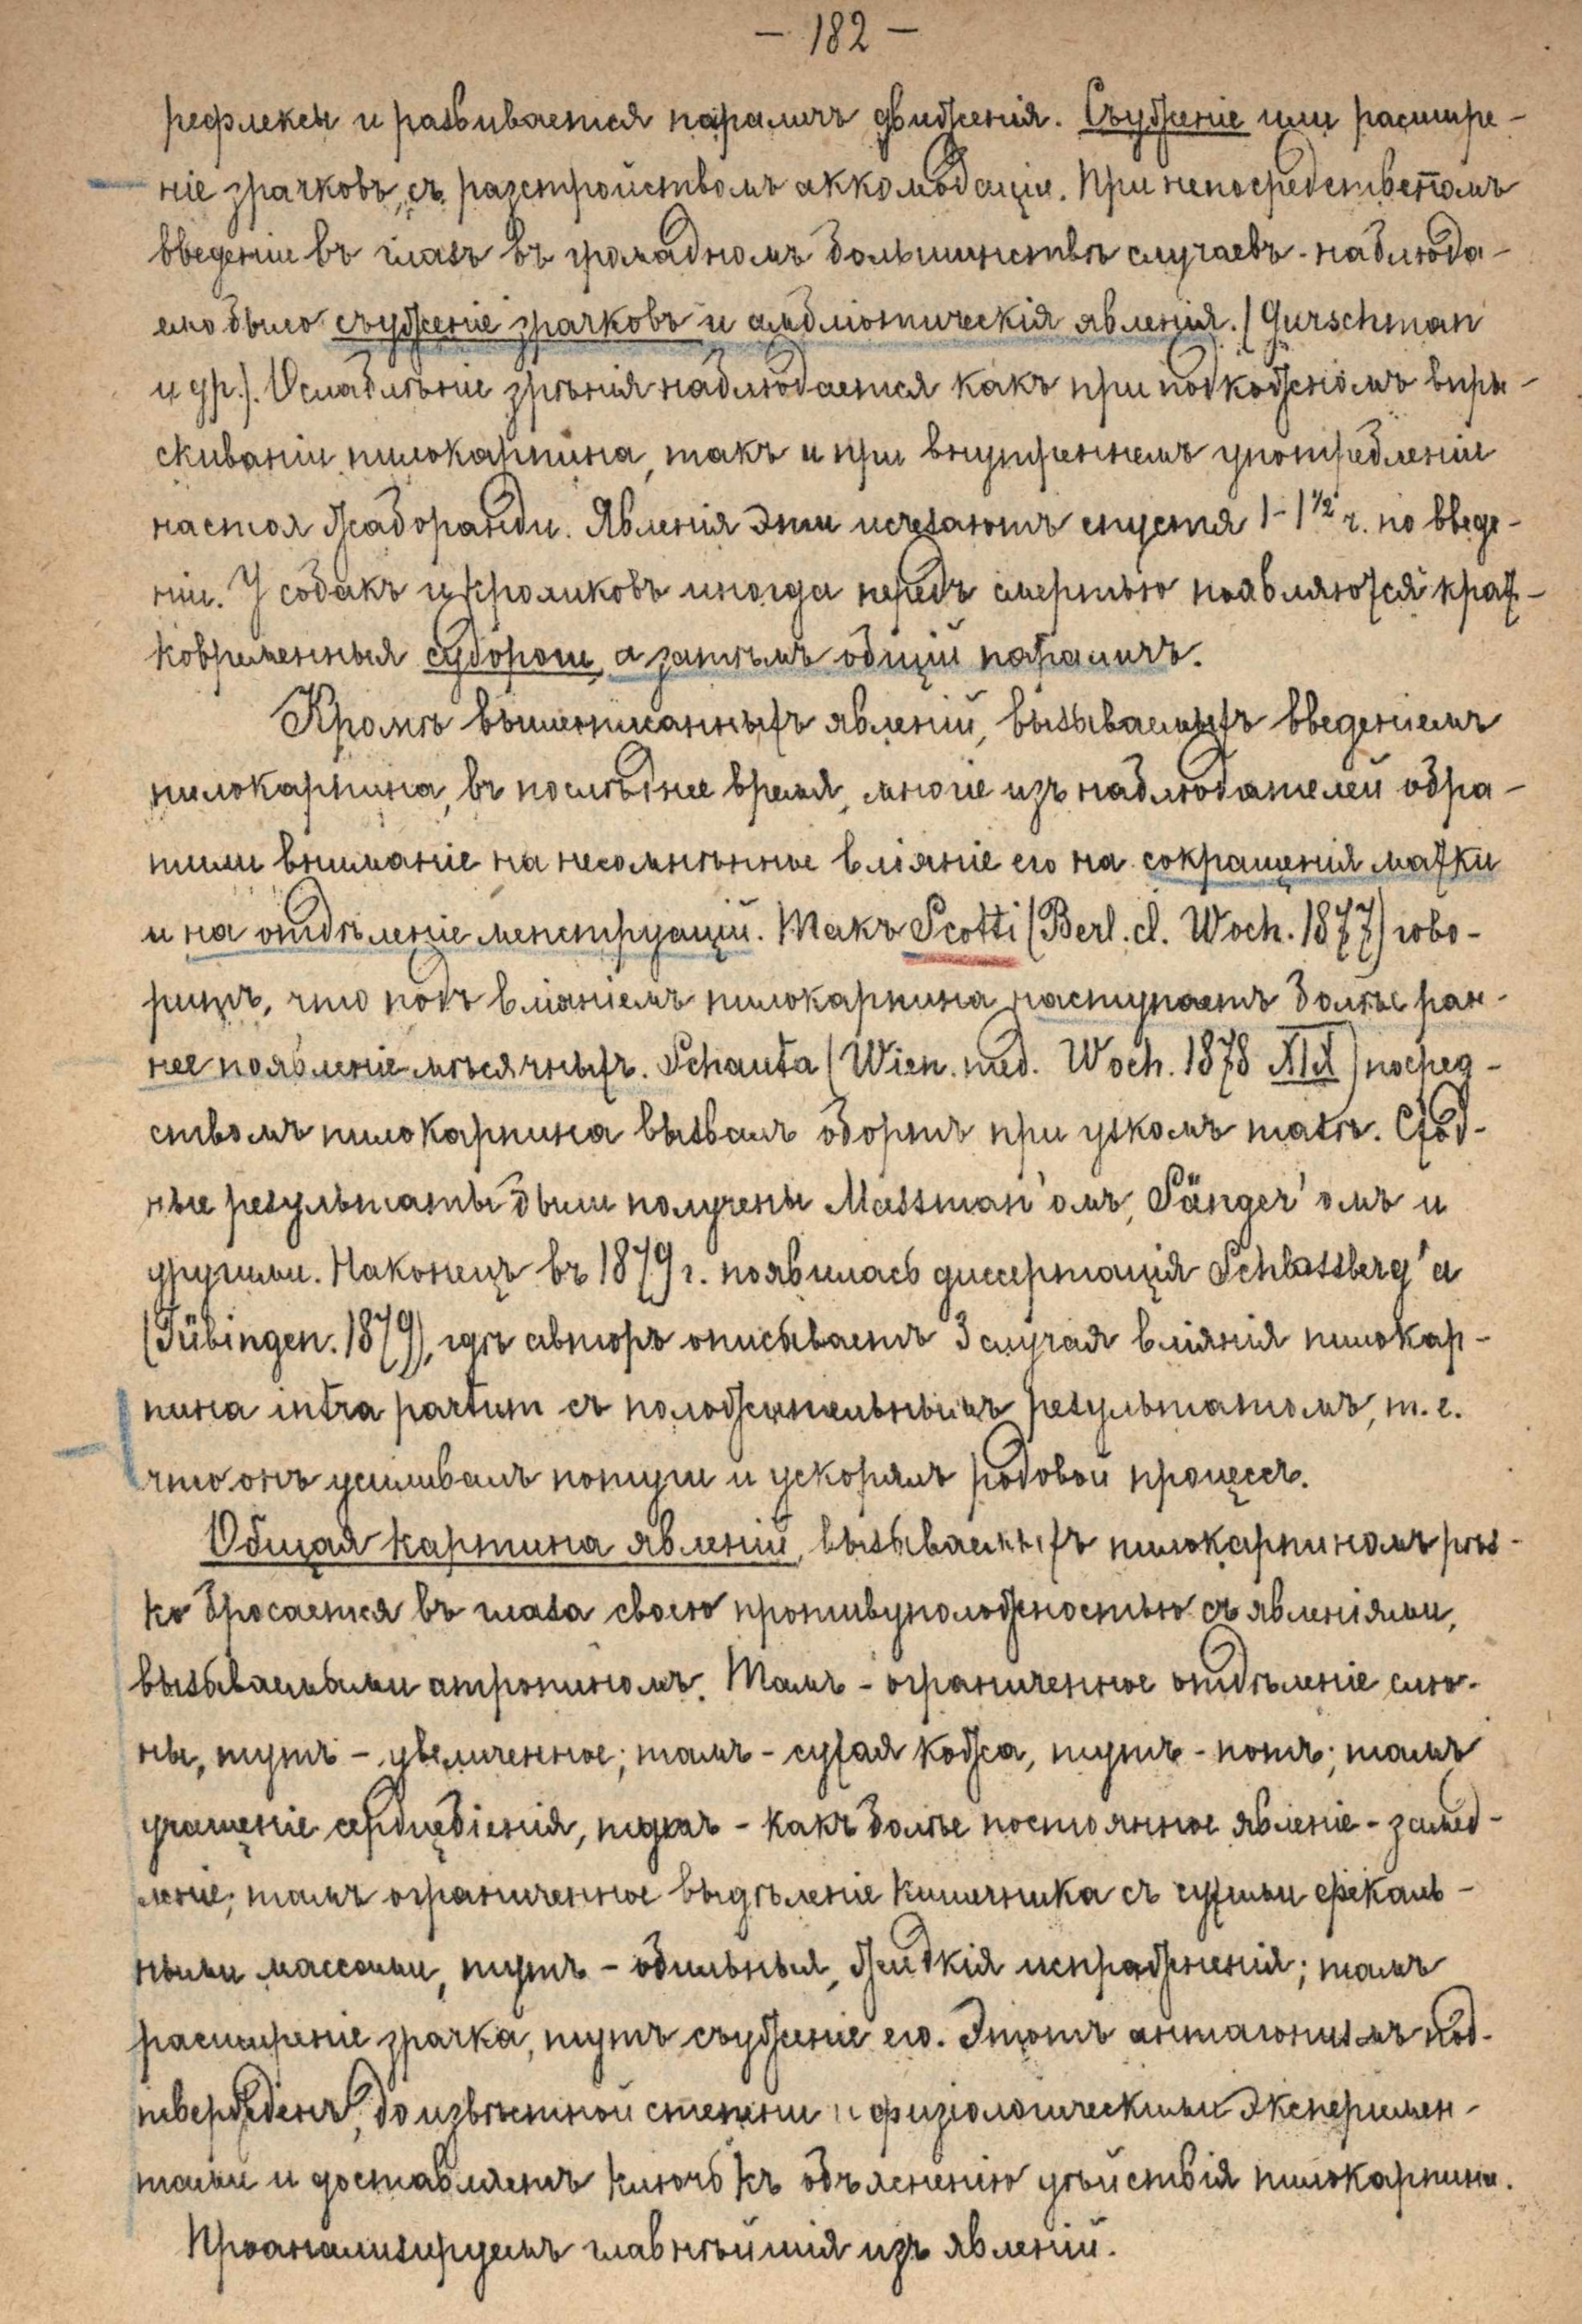 – 182 –
рефлексы и развивается параличъ движенія. Съуженіе или расшире-
ніе зрачковъ, съ разстройствомъ аккомодаціи. При непосредственномъ
введеніи въ глазъ въ громадномъ большинствѣ случаевъ наблюда-
емо было съуженіе зрачковъ и амбліотическія явленія. (Gurschman
и др.). Ослабленіе зрѣнія наблюдается какъ при подкожномъ впры-
скиваніи пилокарпина, такъ и при внутреннемъ употребленіи
настоя жаборанди. Явленія эти исчезаютъ спустя 1-1 1/2 ч. по введе-
ніи. У собакъ и кроликовъ иногда передъ смертью появляются крат-
ковременныя судороги, а затѣмъ общій параличъ.
Кромѣ вышеписанныхъ явленій, вызываемыхъ введеніемъ
пилокарпина, въ послѣднее время, многіе изъ наблюдателей обра-
тили вниманіе на несомнѣнное вліяніе его на сокращенія матки
и на отдѣленіе менструацій. Такъ Scotti (Berl. cl. Woch. 1877) гово-
ритъ, что подъ вліяніемъ пилокарпина наступаетъ болѣе ран-
нее появленіе мѣсячныхъ. Schauta (Wien. med. Woch. 1878 XIX) посред-
ствомъ пилокарпина вызвалъ абортъ при узкомъ тазѣ. Сход-
ные результаты были получены Massman'омъ, Sänger'омъ и
другими. Наконецъ въ 1879 г. появилась диссертація Schlossberg'a
(Tübingen. 1879), гдѣ авторъ описываетъ 3 случая вліянія пилокар-
пина intra partum съ положительнымъ результатомъ, т. е.
что онъ усиливалъ потуги и ускорялъ родовой процессъ.
Общая картина явленій, вызываемыхъ пилокарпиномъ рѣз-
ко бросается въ глаза своею противуположностью съ явленіями,
вызываемыми атропиномъ. Тамъ - ограниченное отдѣленіе слю-
ны, тутъ - увеличенное; тамъ - сухая кожа, тутъ - потъ; тамъ
учащеніе сердцебіенія, тутъ - какъ болѣе постоянное явленіе - замед-
леніе; тамъ ограниченное выдѣленіе кишечника съ сухими фекаль-
ными массами, тутъ - обильныя, жидкія испражненія; тамъ
расширеніе зрачка, тутъ съуженіе его. Этотъ антагонизмъ под-
твержденъ, до извѣстной степени и физіологическими эксперимен-
тами и доставляетъ ключъ къ объясненію дѣйствія пилокарпина.
Проанализируемъ главнѣйшія изъ явленій.